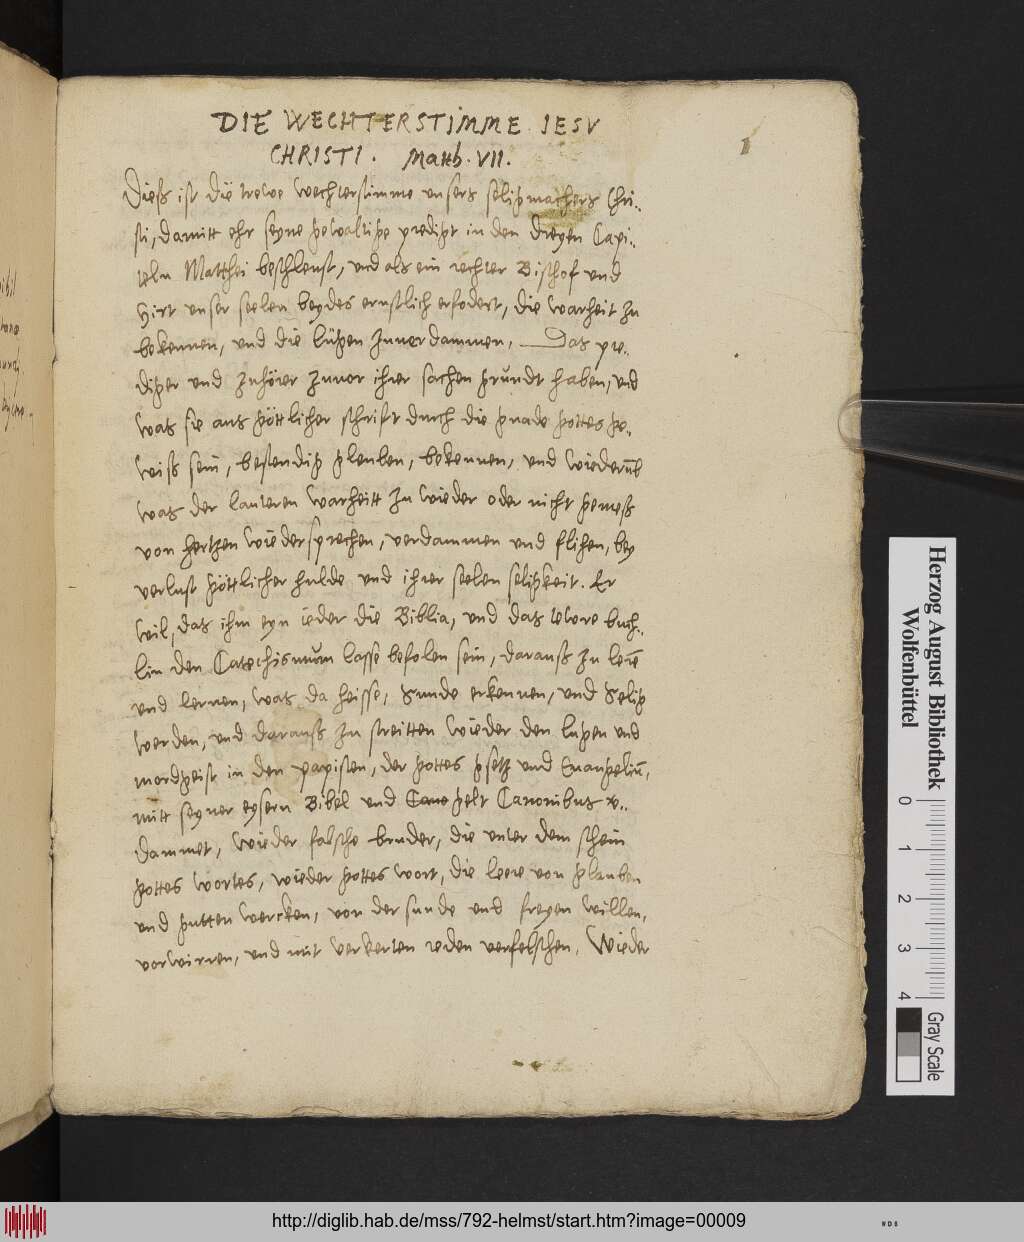 DIE WECHTERSTIMME IESV
CHRISTI. Matth. VII.
1
Dieß ist die trewe wechterstimme unsers seligmachers Chri„
sti, damitt ehr seyne gewaltige predigt in den dreyen Capi„
teln Matthei beschleust, und als ein rechter Bischof und
Hirt unser seelen beydes ernstlich erfodert, die warheit zu
bekennen, und die lügen zuuerdammen, Das pre„
diger und zuhörer zuuor ihrer sachen grundt haben, und
was sie aus göttlicher schrift durch die gnade gottes ge„
wiß sein, bestendig gleuben, bekennen, und wiederūb
was der lauteren warheitt zu wieder oder nicht gemeß
von hertzen wiedersprechen, verdammen und flihen, bey
verlust göttlicher hulde und ihrer seelen seligkeit. Er
wil, das ihm eyn ieder die Biblia, und das tewre buch„
lin den Catechismum lasse befolen sein, darauß zu lerē
und lernen, was da heisse, Sunde erkennen, und Selig
werden, und darauß zu streitten wieder den lugen und
mordgeist in den papisten, der gottes gsetz und Euangeliū,
mitt seyner eysern Bibel und Cano gelt Canonibus v„
dammet, wieder falsche bruder, die unter dem schein
gottes wortes, wieder gottes wort, die leere von glauben
und gutten wercken, von der sunde und freyen willen,
vorwirren, und mit verkerten reden verfelschen. Wieder
Herzog August Bibliothek
Wolfenbüttel
0 1 2 3 4
Gray Scale
http://diglib.hab.de/mss/792-helmst/start.htm?image=00009